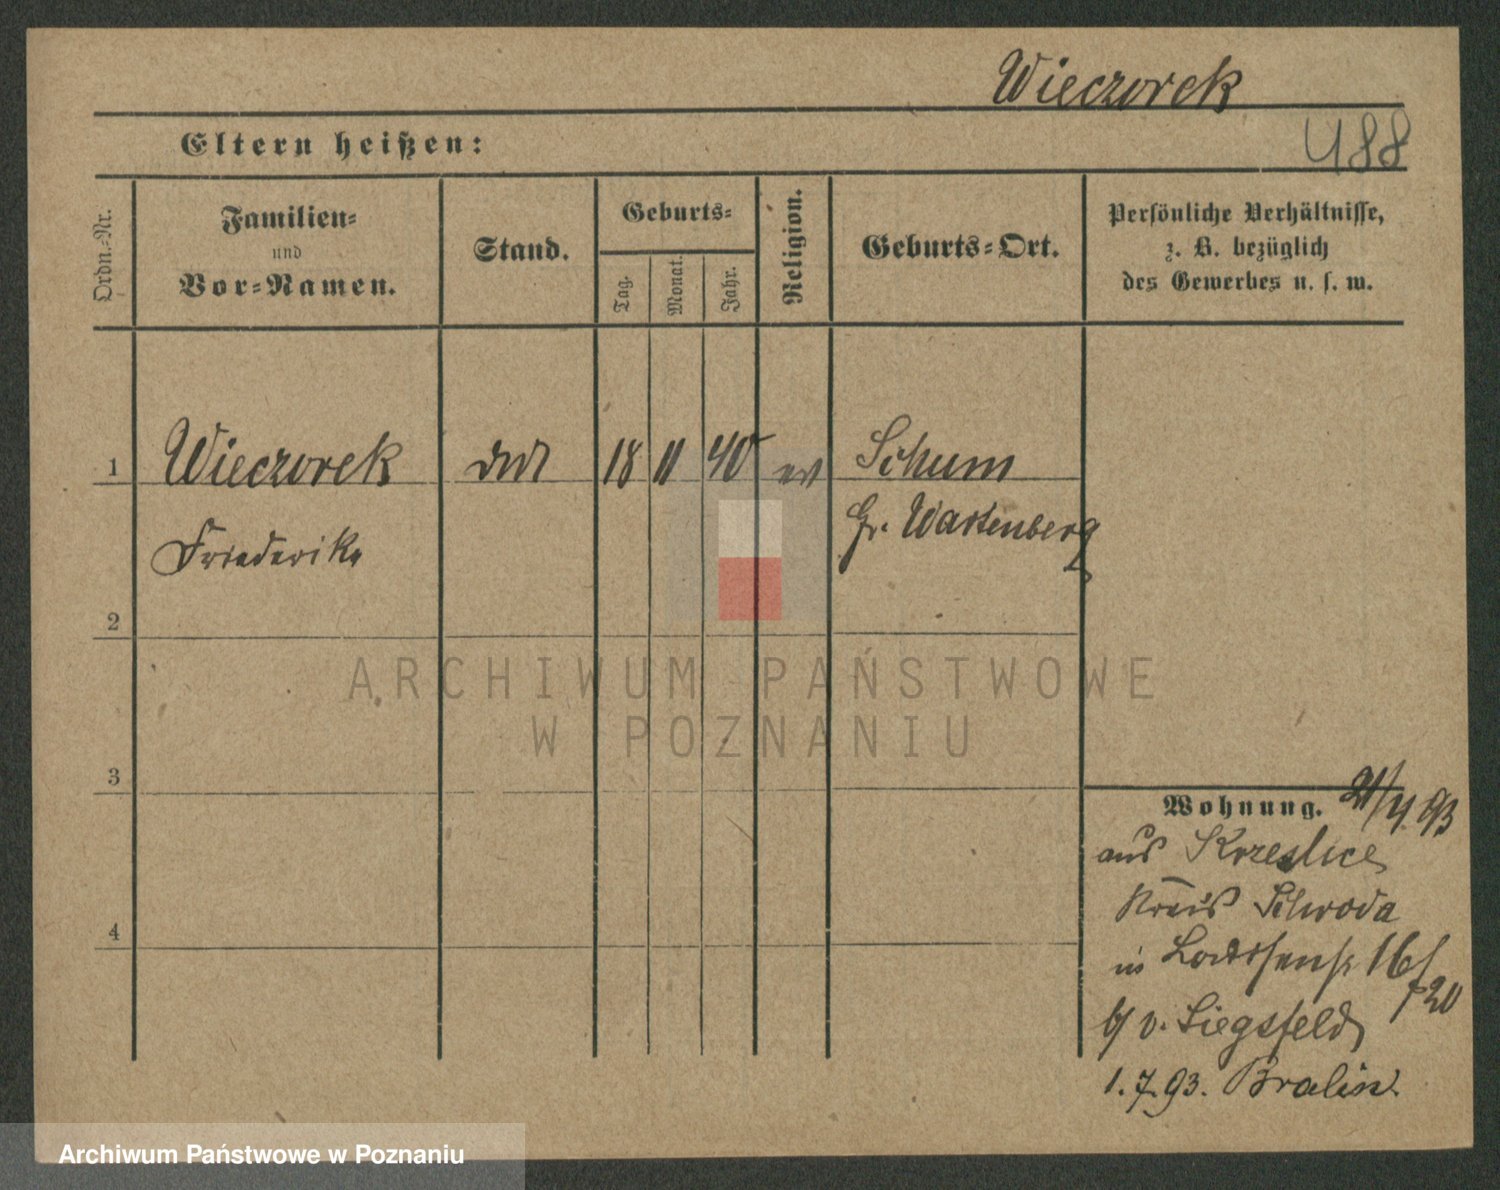 Wieczorek
Eltern heißen:
488
Ordn.-Nr.
Familien-
und
Vor-Namen.
Stand.
Geburts-
Tag.
Monat.
Jahr.
Religion.
Geburts-Ort.
Persönliche Verhältnisse,
z. B. bezüglich
des Gewerbes u. s. w.
1 Wieczorek 18 11 40 ev Schum
Friederike Gr. Wartenberg
2
3
4
Wohnung.
aus Krzeslice
Kreis Schroda
in 16/
b/ v. Siegsfeld
1.7.93. Bralin
ARCHIWUM PAŃSTWOWE
W POZNANIU
Archiwum Państwowe w Poznaniu